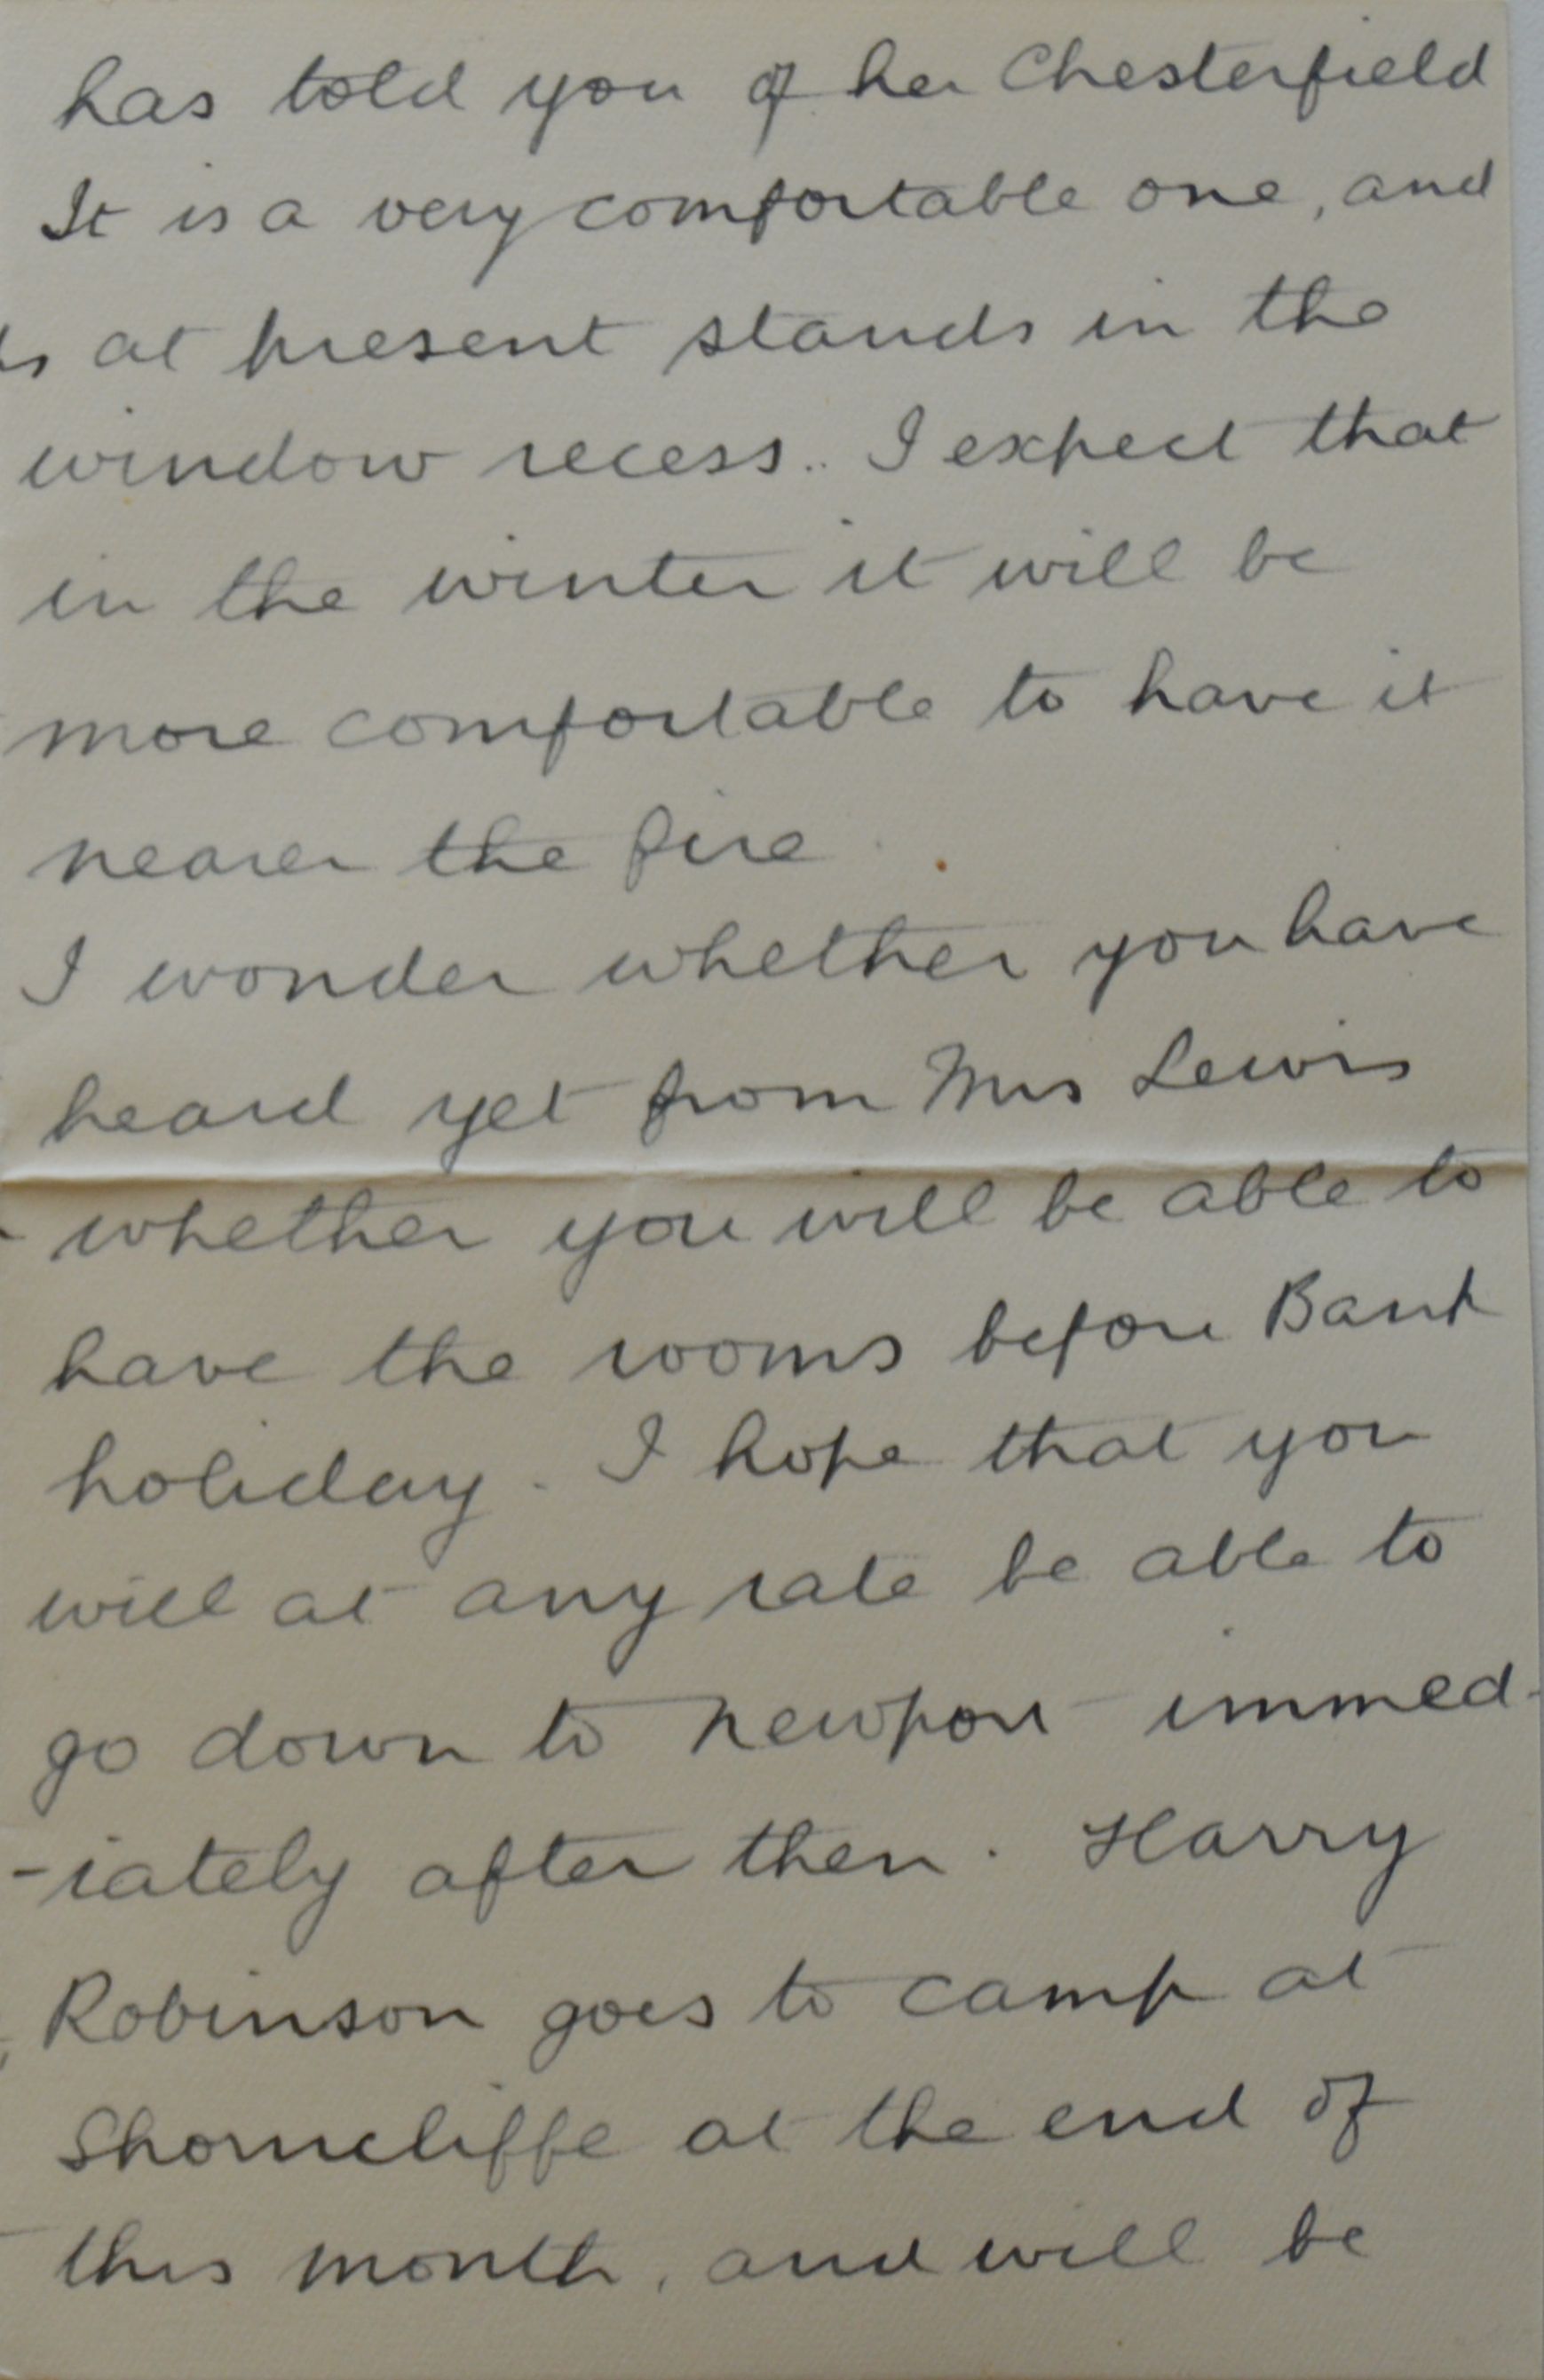 has told you of her Chesterfield
It is a very comfortable one, and
at present stands in the
window recess.. I expect that
in the winter it will be
more comfortable to have it
nearer the fire
I wonder whether you have
heard yet from Mrs Lewis
whether you will be able to
have the rooms before Bank
holiday. I hope that you
will at any rate be able to
go down to Newport immed-
-iately after then. Harry
Robinson goes to camp at
Shorncliffe at the end of
this month, and will be